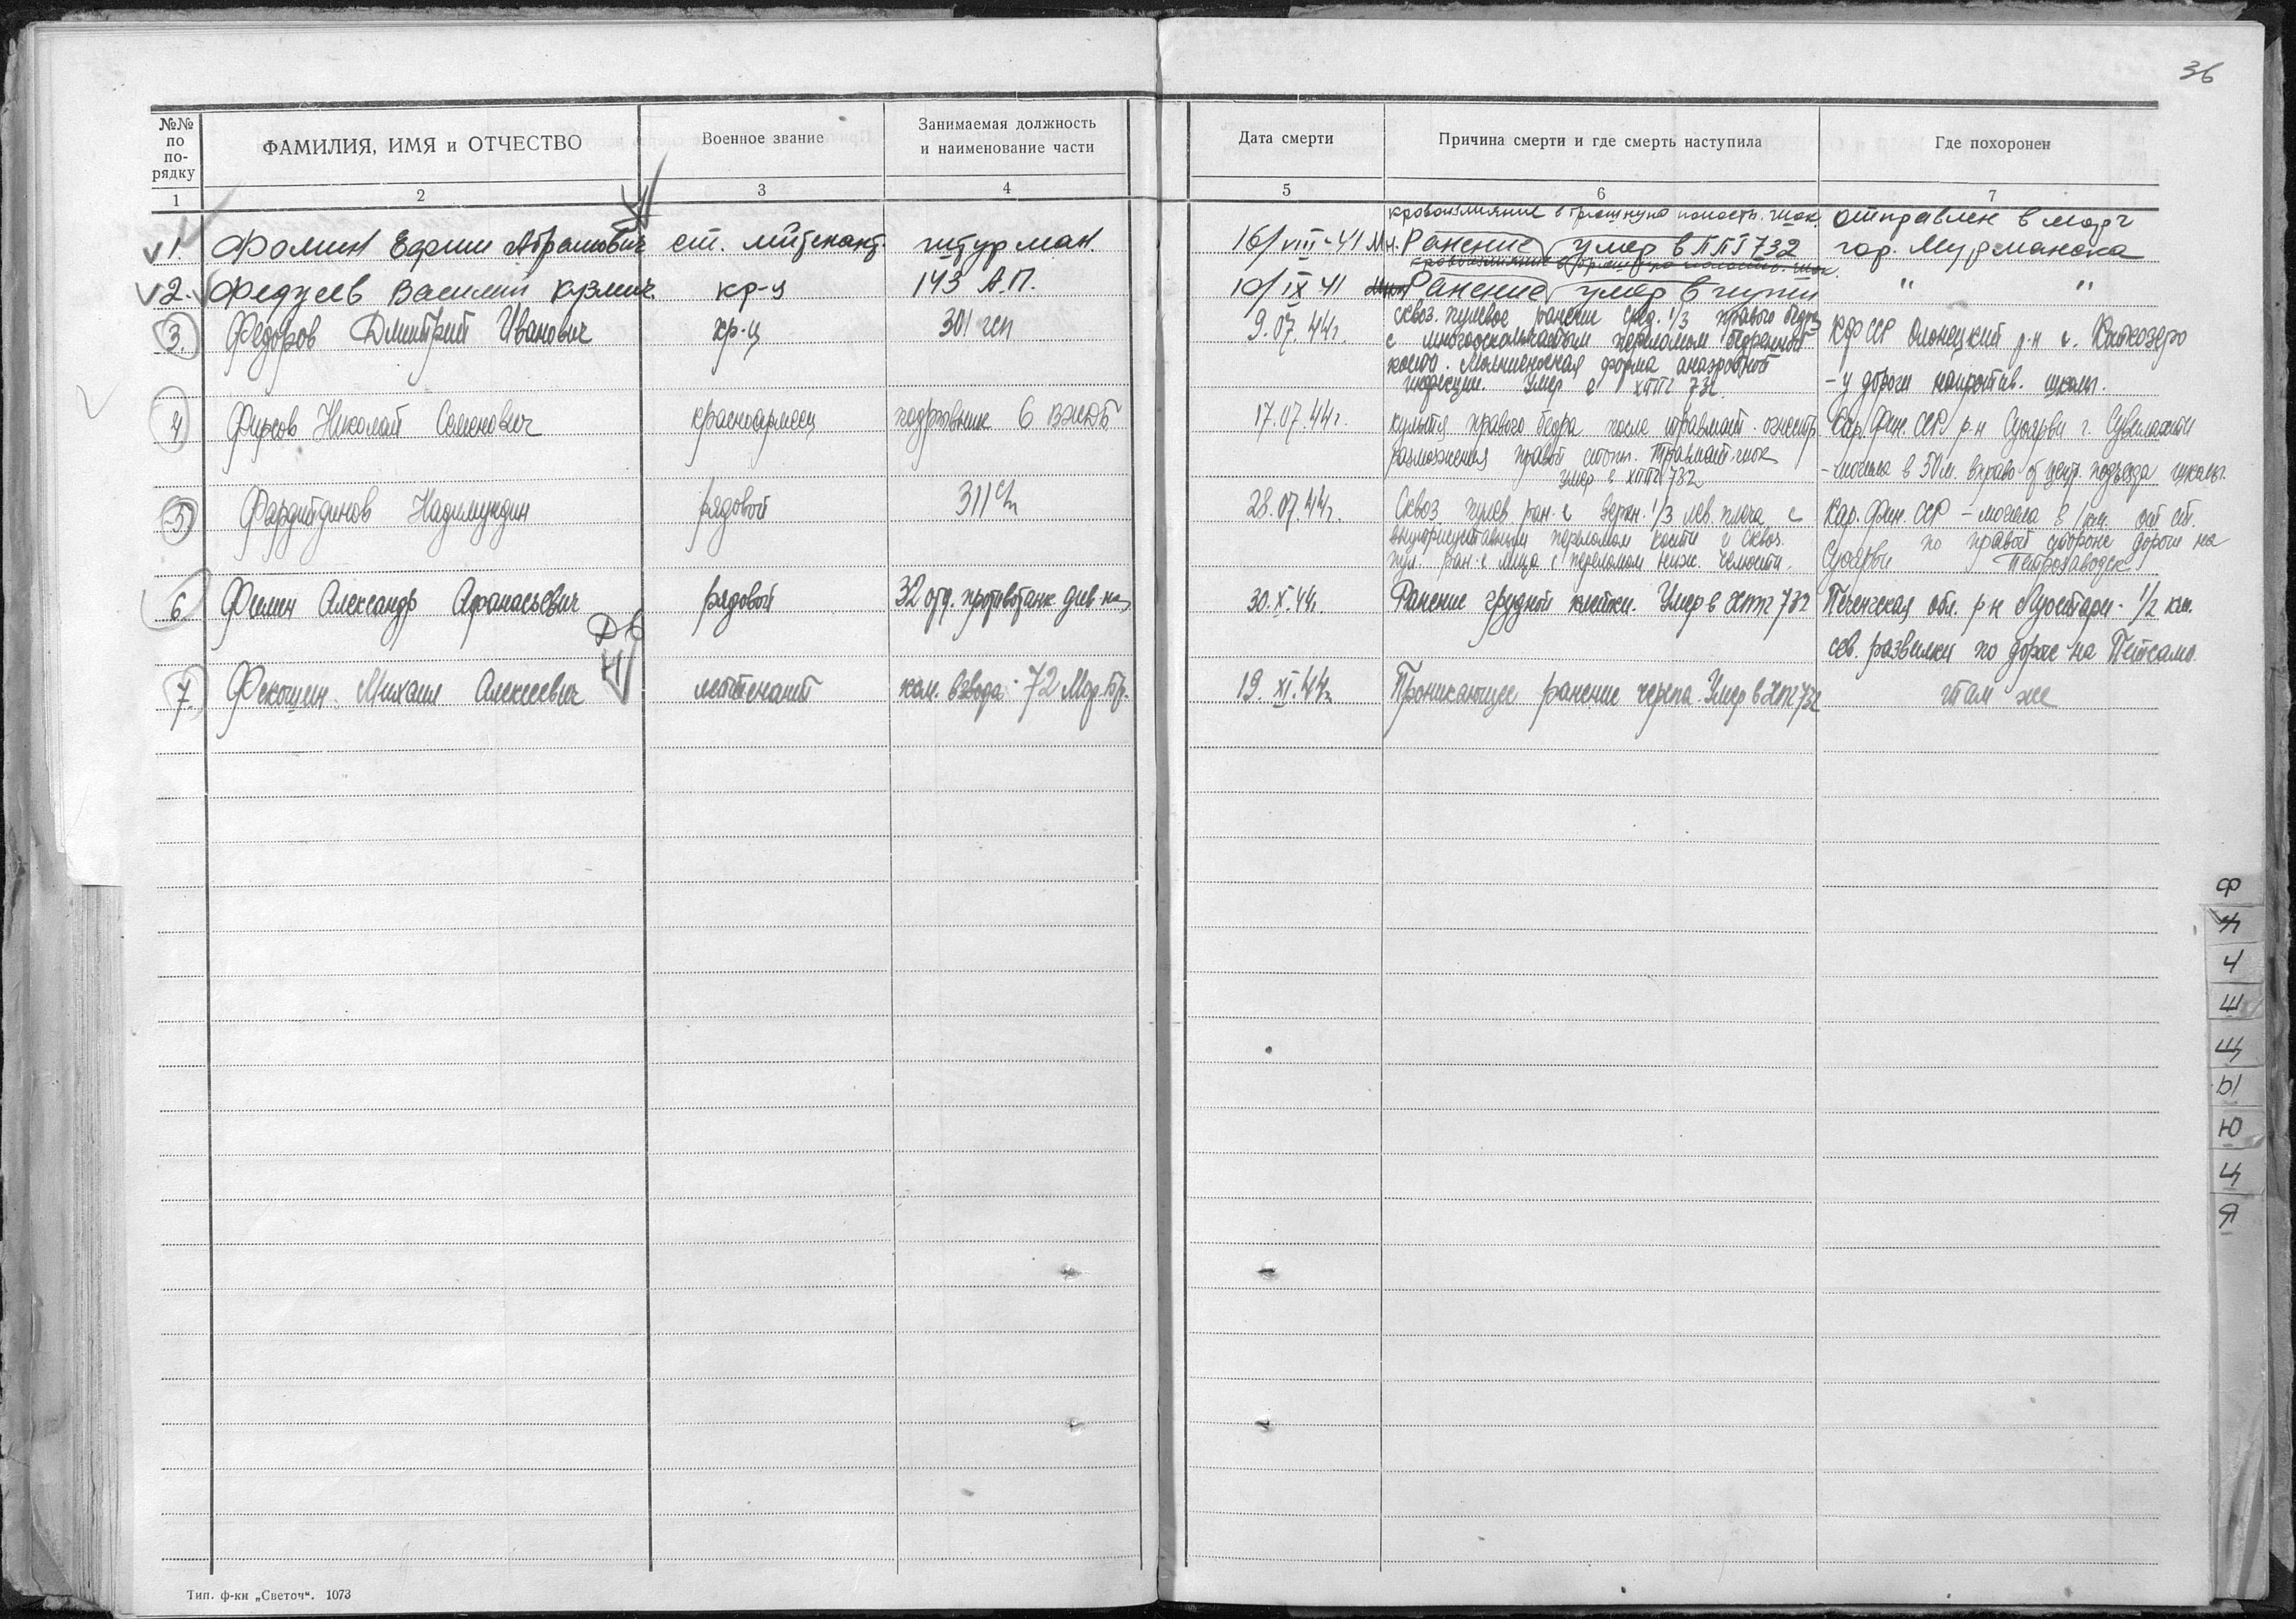 36
№№ по по-рядку
ФАМИЛИЯ, ИМЯ и ОТЧЕСТВО
Военное звание
Занимаемая должность и наименование части
Дата смерти
Причина смерти и где смерть наступила
Где похоронен
1 2 3 4 5 6 7
кровоизлияние в брюшную полость. шок. отправлен в морг
1. Фомин Ефим Абрамович ст. лейтенант. штурман. 16/VIII-41 Ранение умер в ППГ 732 гор. Мурманска
кровоизлияние в брюшную полость. шок.
2. Федусев Василий Кузмич. кр-ц 143 А.П. 10/IX 41 Ранение умер в пути " "
3. Федоров Дмитрий Иванович кр-ц 301 сп 9.07.44г. сквоз. пулевое ранение сред. 1/3 правого бедра
с многооскольчатым переломом бедренной КФССР Олонецкий р-н с. Каткозеро
кости. Молниеносная форма анаэробной
инфекции. Умер в ХППГ 732. - у дороги напротив. школы.
4 Фирсов Николай Семенович красноармеец подрывник 6 17.07.44г. культя правого бедра после травмат. Кар. Фин. ССР р-н Суоярви г. Сувилахти
размозжения правой стопы. Травмат. шок - могила в 50 м. вправо от центр. подъезда школы.
Умер в ХППГ 732
5 Фардитдинов рядовой 311 сп 28.07.44г. Сквоз пулев. ран-е верхн. 1/3 лев. плеча с Кар. Фин. ССР - могила в 1 км. от ст.
внутрисуставным переломом кости и сквоз. Суоярви по правой стороне дороги на
пул. ран-е лица с переломом ниж. челюсти. Петрозаводск
6 Филин Александр Афанасьевич рядовой 32 отд. противотанк. див-н 30.X.44г. Ранение грудной клетки. Умер в ХППГ 732 Печенгская обл. р-н Луостари - 1/2 км.
сев. развилки по дороге на Петсамо.
7. Фекошин Михаил Алексеевич лейтенант ком. взвода 72 Мор. Бр. 19.XI.44г. Проникающее ранение черепа. Умер в ХППГ 732 там же
Ф
Ч
Ш
Щ
Ы
Ю
Ц
Я
Тип. ф-ки „Светоч“. 1073